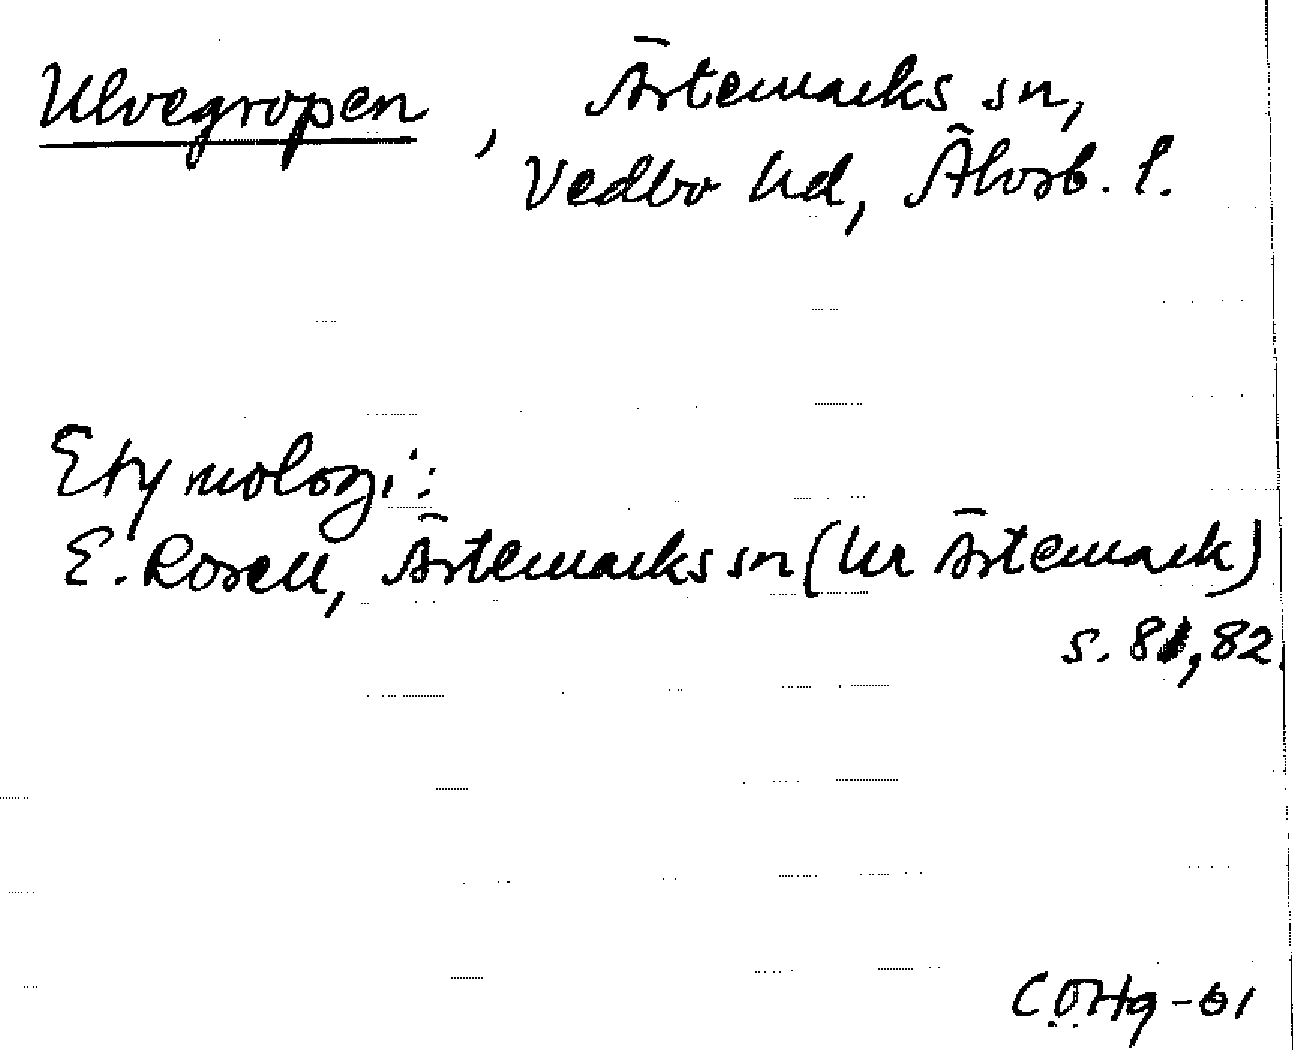 Ulvegropen, Ärtemarks sn,
Vedbo hd, Älvsb. l.
Etymologi:
E. Rosell, Ärtemarks sn (ur Ärtemark)
s. 81, 82.